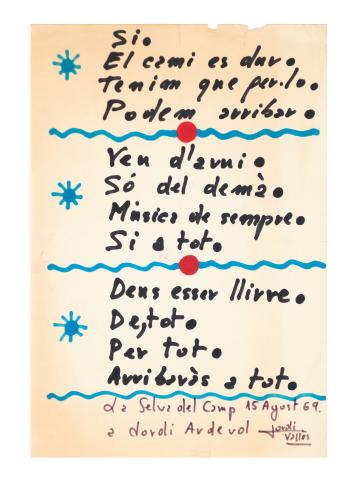 Si.
El camí es dur.
Tenim que fer-lo.
Podem arribar.
Veu d'avui.
Só del demà.
Música de sempre.
Si a tot.
Deus esser lliure.
De tot.
Per tot.
Arribaràs a tot.
La Selva del Camp 15 Agost 69.
a Jordi Ardevol
Jordi
Vallès